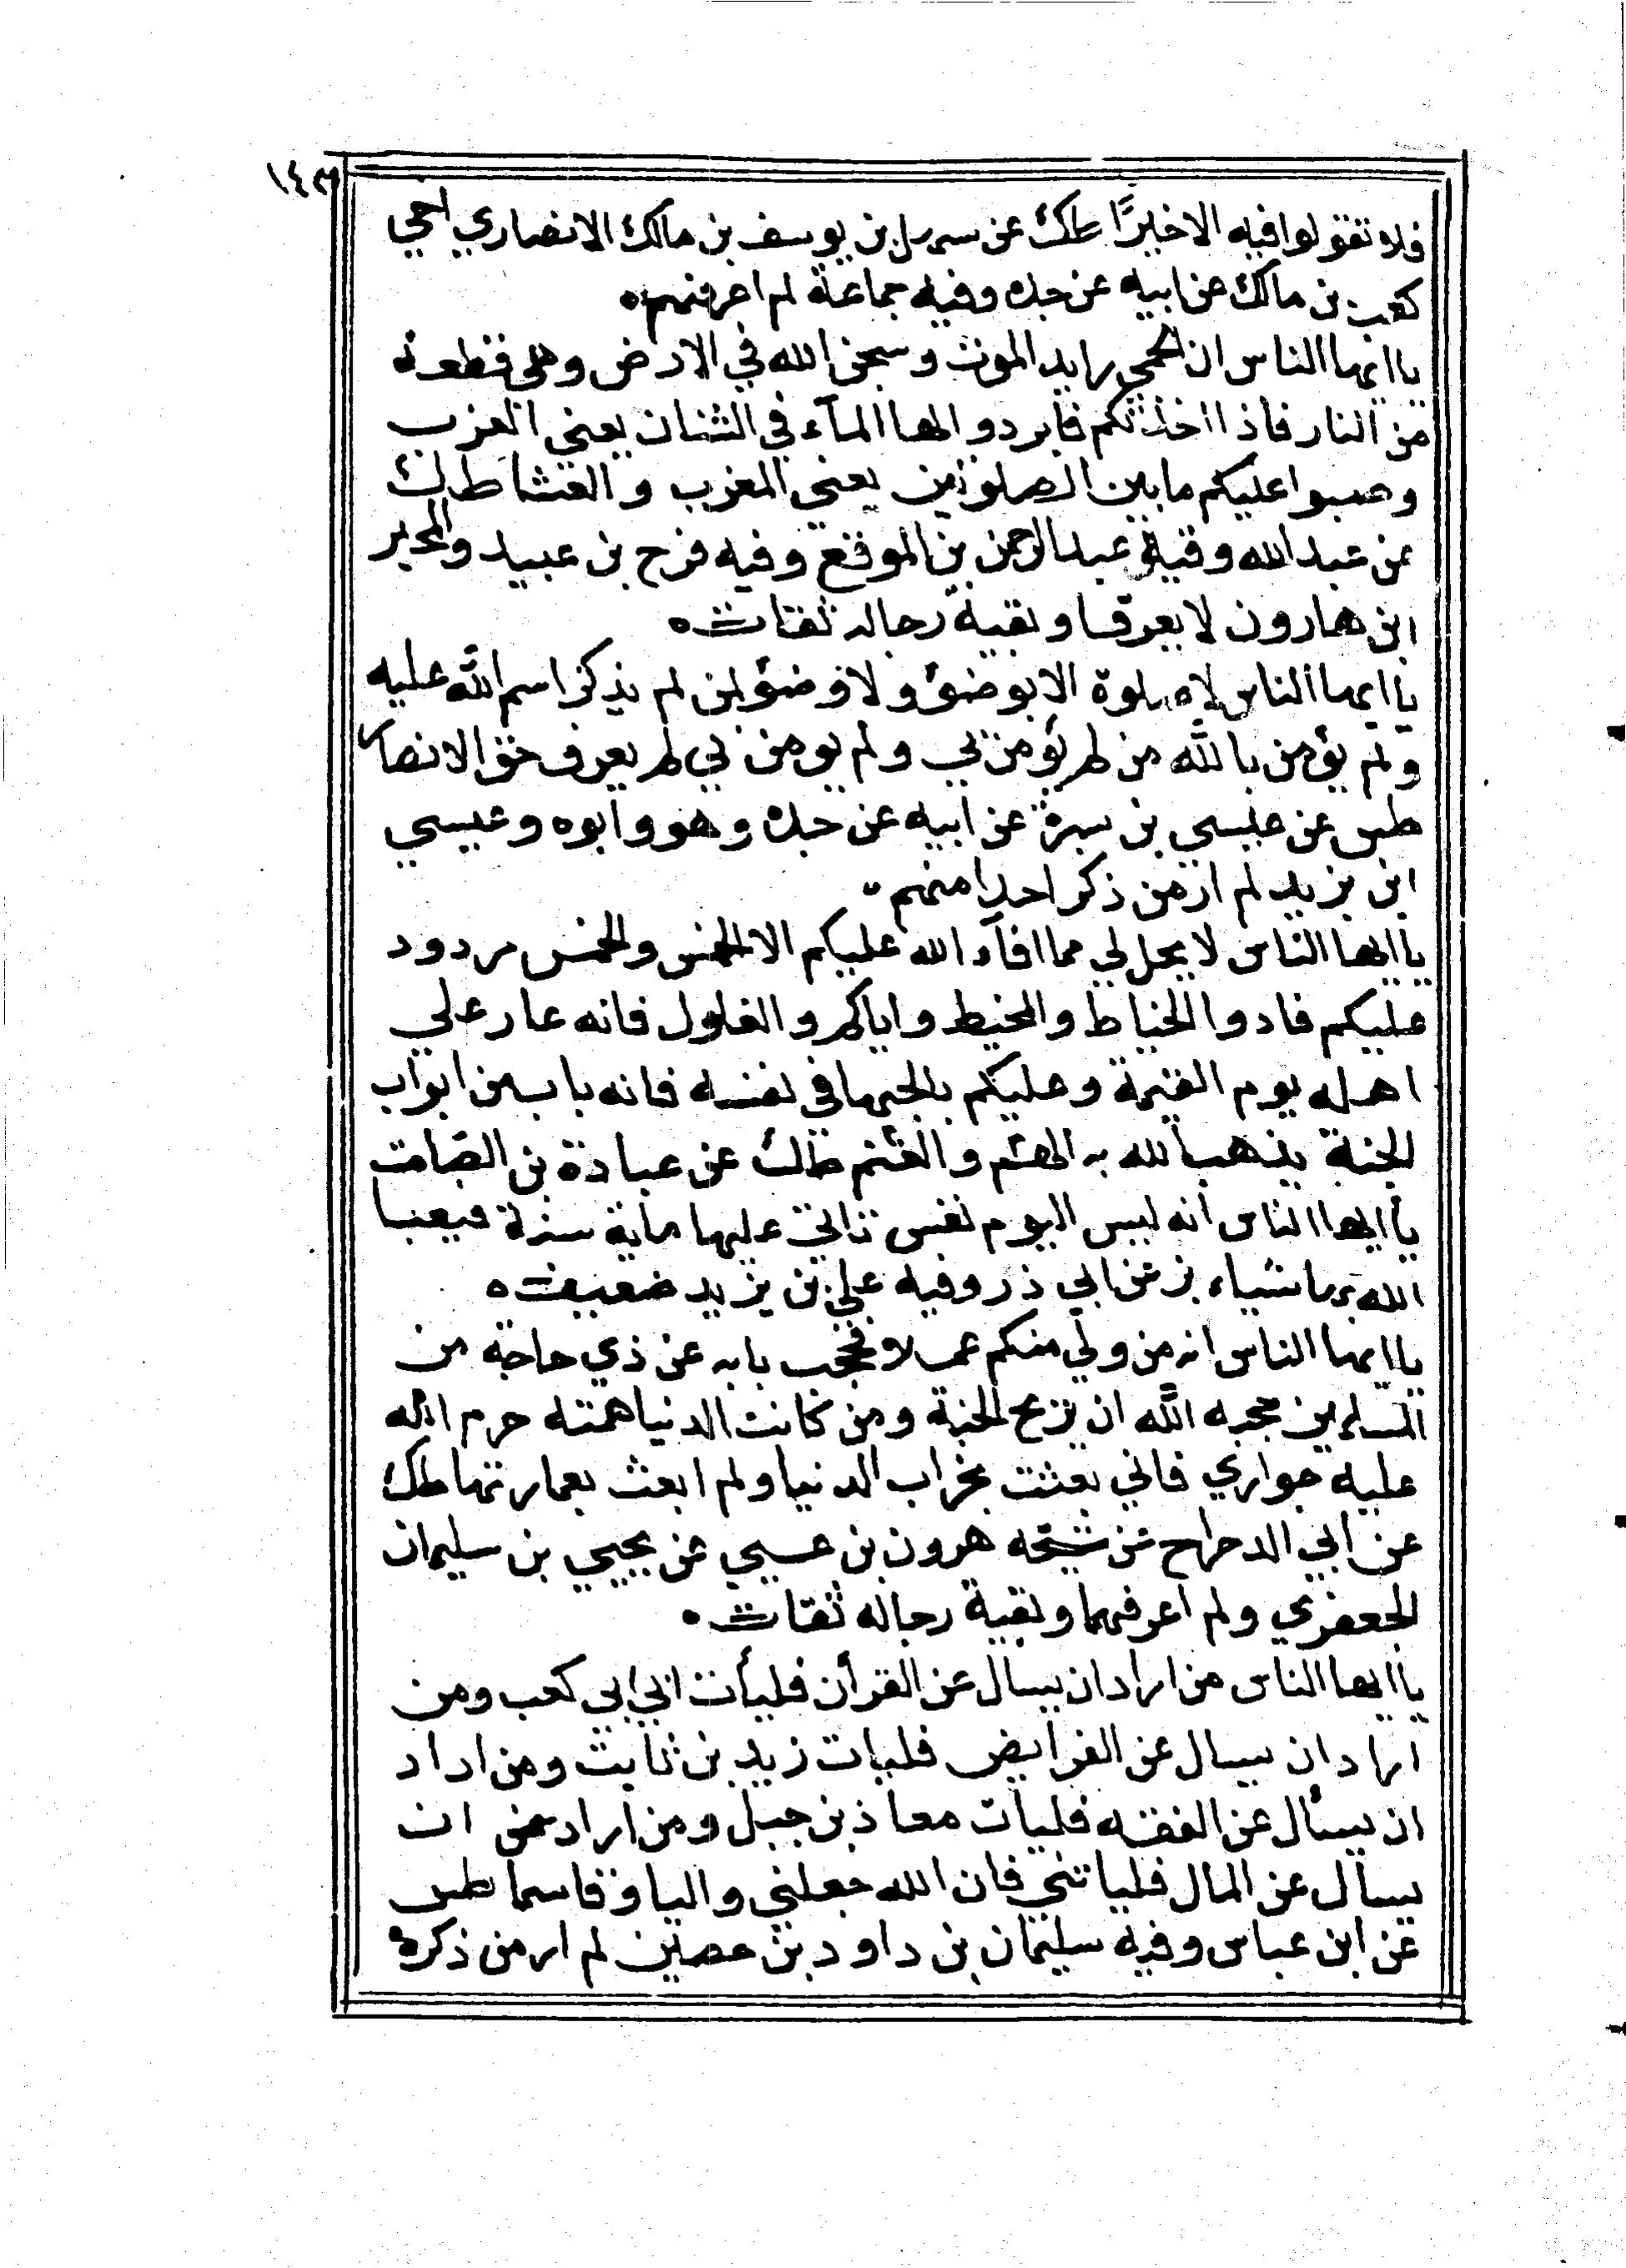 ١٤٣
فلا تقولوا فيه الا خيرًا طك عن سهل بن يوسف بن مالك الانصاري اخي
كعب بن مالك عن ابيه عن جده وفيه جماعة لم اعرفهم ه
يا ايها الناس ان الحمي رايد الموت وسجن الله في الارض وهي قطعة
من النار فاذا اخذتكم فابردوا لها المآء في الشنان يعني القرب
وصبوا عليكم ما بين الصلوتين يعني المغرب والعشا طك
عن عبد الله وقيل عبد الرحمن بن المرقع وفيه فرح بن عبيد والمحبر
ابن هارون لا يعرفا وبقية رجاله ثقات ه
يا ايها الناس لا صلوة الا بوضؤ ولا وضؤ لمن لم يذكر اسم الله عليه
ولم يؤمن بالله من لم يؤمن بي ولم يومن بي لم يعرف حق الانصار
طس عن عيسي بن سبرة عن ابيه عن جده وهو وابوه وعيسي
ابن يزيد لم ار من ذكر احدا منهم
يا ايها الناس لا يحل لي مما افآء الله عليكم الا الخمس والخمس مردود
عليكم فادوا الخياط والمخيط واياكم والغلول فانه عار علي
اهله يوم القيمة وعليكم بالجها في نفسه فانه باب من ابواب
الجنة يذهب الله به الهم والغم طك عن عبادة بن الصامت
يا ايها الناس انه ليس اليوم نفس تاتي عليها ماية سنة فيعبا
الله بها شياء بز عن ابي ذر وفيه علي بن يزيد ضعيف ه
يا ايها الناس انه من ولي منكم عملا فحجب بابه عن ذي حاجة من
المسلمين حجبه الله ان يزع الجنة ومن كانت الدنيا همته حرم الله
عليه جواري فاني بعثت بخراب الدنيا ولم ابعث بعمارتها طك
عن ابي الدحداح عن شيخه هرون بن عسيي عن يحيي بن سليمان
الجعفري ولم اعرفهما وبقية رجاله ثقات ه
يا ايها الناس من اراد ان يسال عن القرأن فليأت ابي ابي كعب ومن
اراد ان يسال عن الفرايض فليات زيد بن ثابت ومن اراد
ان يسأل عن الفقه فليات معاذ بن جبل ومن اراد ان
يسأل عن المال فلياتني فان الله جعلني واليا وقاسما طس
عن ابن عباس وفيه سليمان بن داود بن حصين لم ار من ذكره